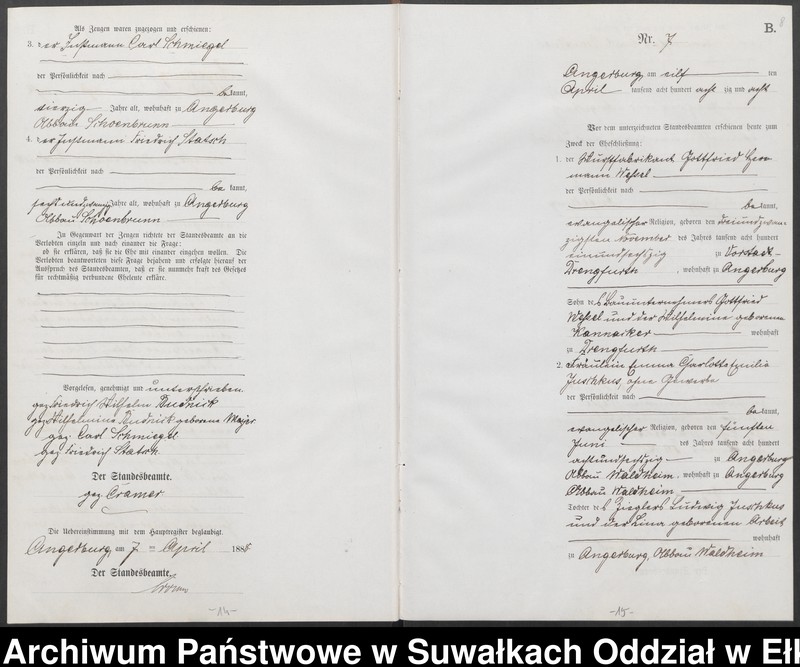 Als Zeugen waren zugezogen und erschienen:
3. der Instmann Carl Schmiegel
der Persönlichkeit nach
bekannt,
vierzig Jahre alt, wohnhaft zu Angerburg
Abbau Schoenbrunn
4. der Instmann Friedrich Statsch
der Persönlichkeit nach
bekannt,
Jahre alt, wohnhaft zu Angerburg
Abbau Schoenbrunn
In Gegenwart der Zeugen richtete der Standesbeamte an die
Verlobten einzeln und nach einander die Frage:
ob sie erklären, daß sie die Ehe mit einander eingehen wollen. Die
Verlobten beantworteten diese Frage bejahend und erfolgte hierauf der
Ausspruch des Standesbeamten, daß er sie nunmehr kraft des Gesetzes
für rechtmäßig verbundene Eheleute erkläre.
Vorgelesen, genehmigt und unterschrieben
gez. Friedrich Wilhelm Rudnick
gez. Wilhelmine Rudnick geborene Majer
gez. Carl Schmiegel
gez. Friedrich Statsch
Der Standesbeamte.
gez. Cramer
Die Uebereinstimmung mit dem Hauptregister beglaubigt.
Angerburg, am 7 ten April 1888
Der Standesbeamte.
-14-
B.
8
Nr. 7
Angerburg, am eilf ten
April tausend acht hundert acht zig und acht
Vor dem unterzeichneten Standesbeamten erschienen heute zum
Zweck der Eheschließung:
1. der Wurstfabrikant Gottfried Her-
mann Wessel
der Persönlichkeit nach
bekannt,
evangelischer Religion, geboren den dreiundzwan-
zigsten November des Jahres tausend acht hundert
einundsechszig zu Vorstadt-
Drengfurth, wohnhaft zu Angerburg
Sohn des Bauunternehmers Gottfried
Wessel und der Wilhelmine geborenen
Kannacker wohnhaft
zu Drengfurth
2. Fräulein Emma Charlotte Emilie
Juschkus, ohne Gewerbe
der Persönlichkeit nach
bekannt,
evangelischer Religion, geboren den fünften
Juni des Jahres tausend acht hundert
achtundsechszig zu Angerburg
Abbau Waldheim, wohnhaft zu Angerburg
Abbau Waldheim
Tochter des Zieglers Ludwig Juschkus
und der Lina geborenen Arbeit
wohnhaft
zu Angerburg, Abbau Waldheim
-15-
Archiwum Państwowe w Suwałkach Oddział w Eł